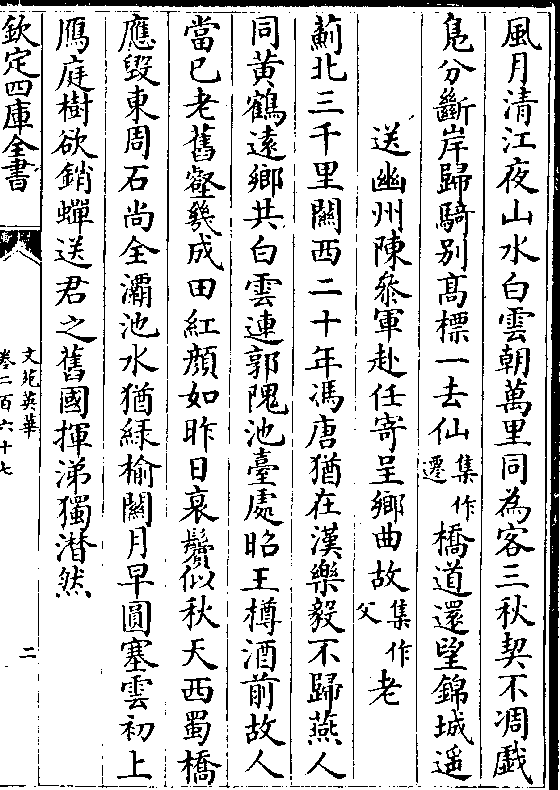 風月清江夜山水白雲朝萬里同為客三秋契不凋戯
鳬分斷岸歸騎別髙標一去仙集作遷橋道還望錦城遥
送幽州陳叅軍赴任寄呈鄉曲故集作父老
薊北三千里關西二十年馮唐猶在漢樂毅不歸燕人
同黃鶴遠鄉共白雲連郭隗池臺處昭王樽酒前故人
當已老舊壑幾成田紅顔如昨日衰鬢似秋天西蜀橋
應毀東周石尚全灞池水猶緑榆關月早圓塞雲初上
鴈庭樹欲銷蟬送君之舊國揮涕獨潸然
欽定四庫全書
文苑英華
卷二百六十七
二